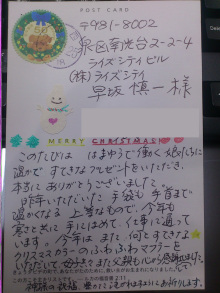 POST CARD
〒981-8002
泉区南光台2-2-4
ライズシティビル
(株)ライズシティ
早坂 慎一 様
MERRY CHRISTMAS
このたびは はまゆうで働く娘たちに
温かで すてきなプレゼントをいただき、
本当にありがとうございました。
昨年いただいた手袋も手首まで
温かくなる上等なもので、今年も
寒さと共に手にはめて、仕事に通って
います。今年は また 何とすてきな
クリスマスカラーのふわふわマフラーを
いただいて、母子で また父親も心から感謝しました。